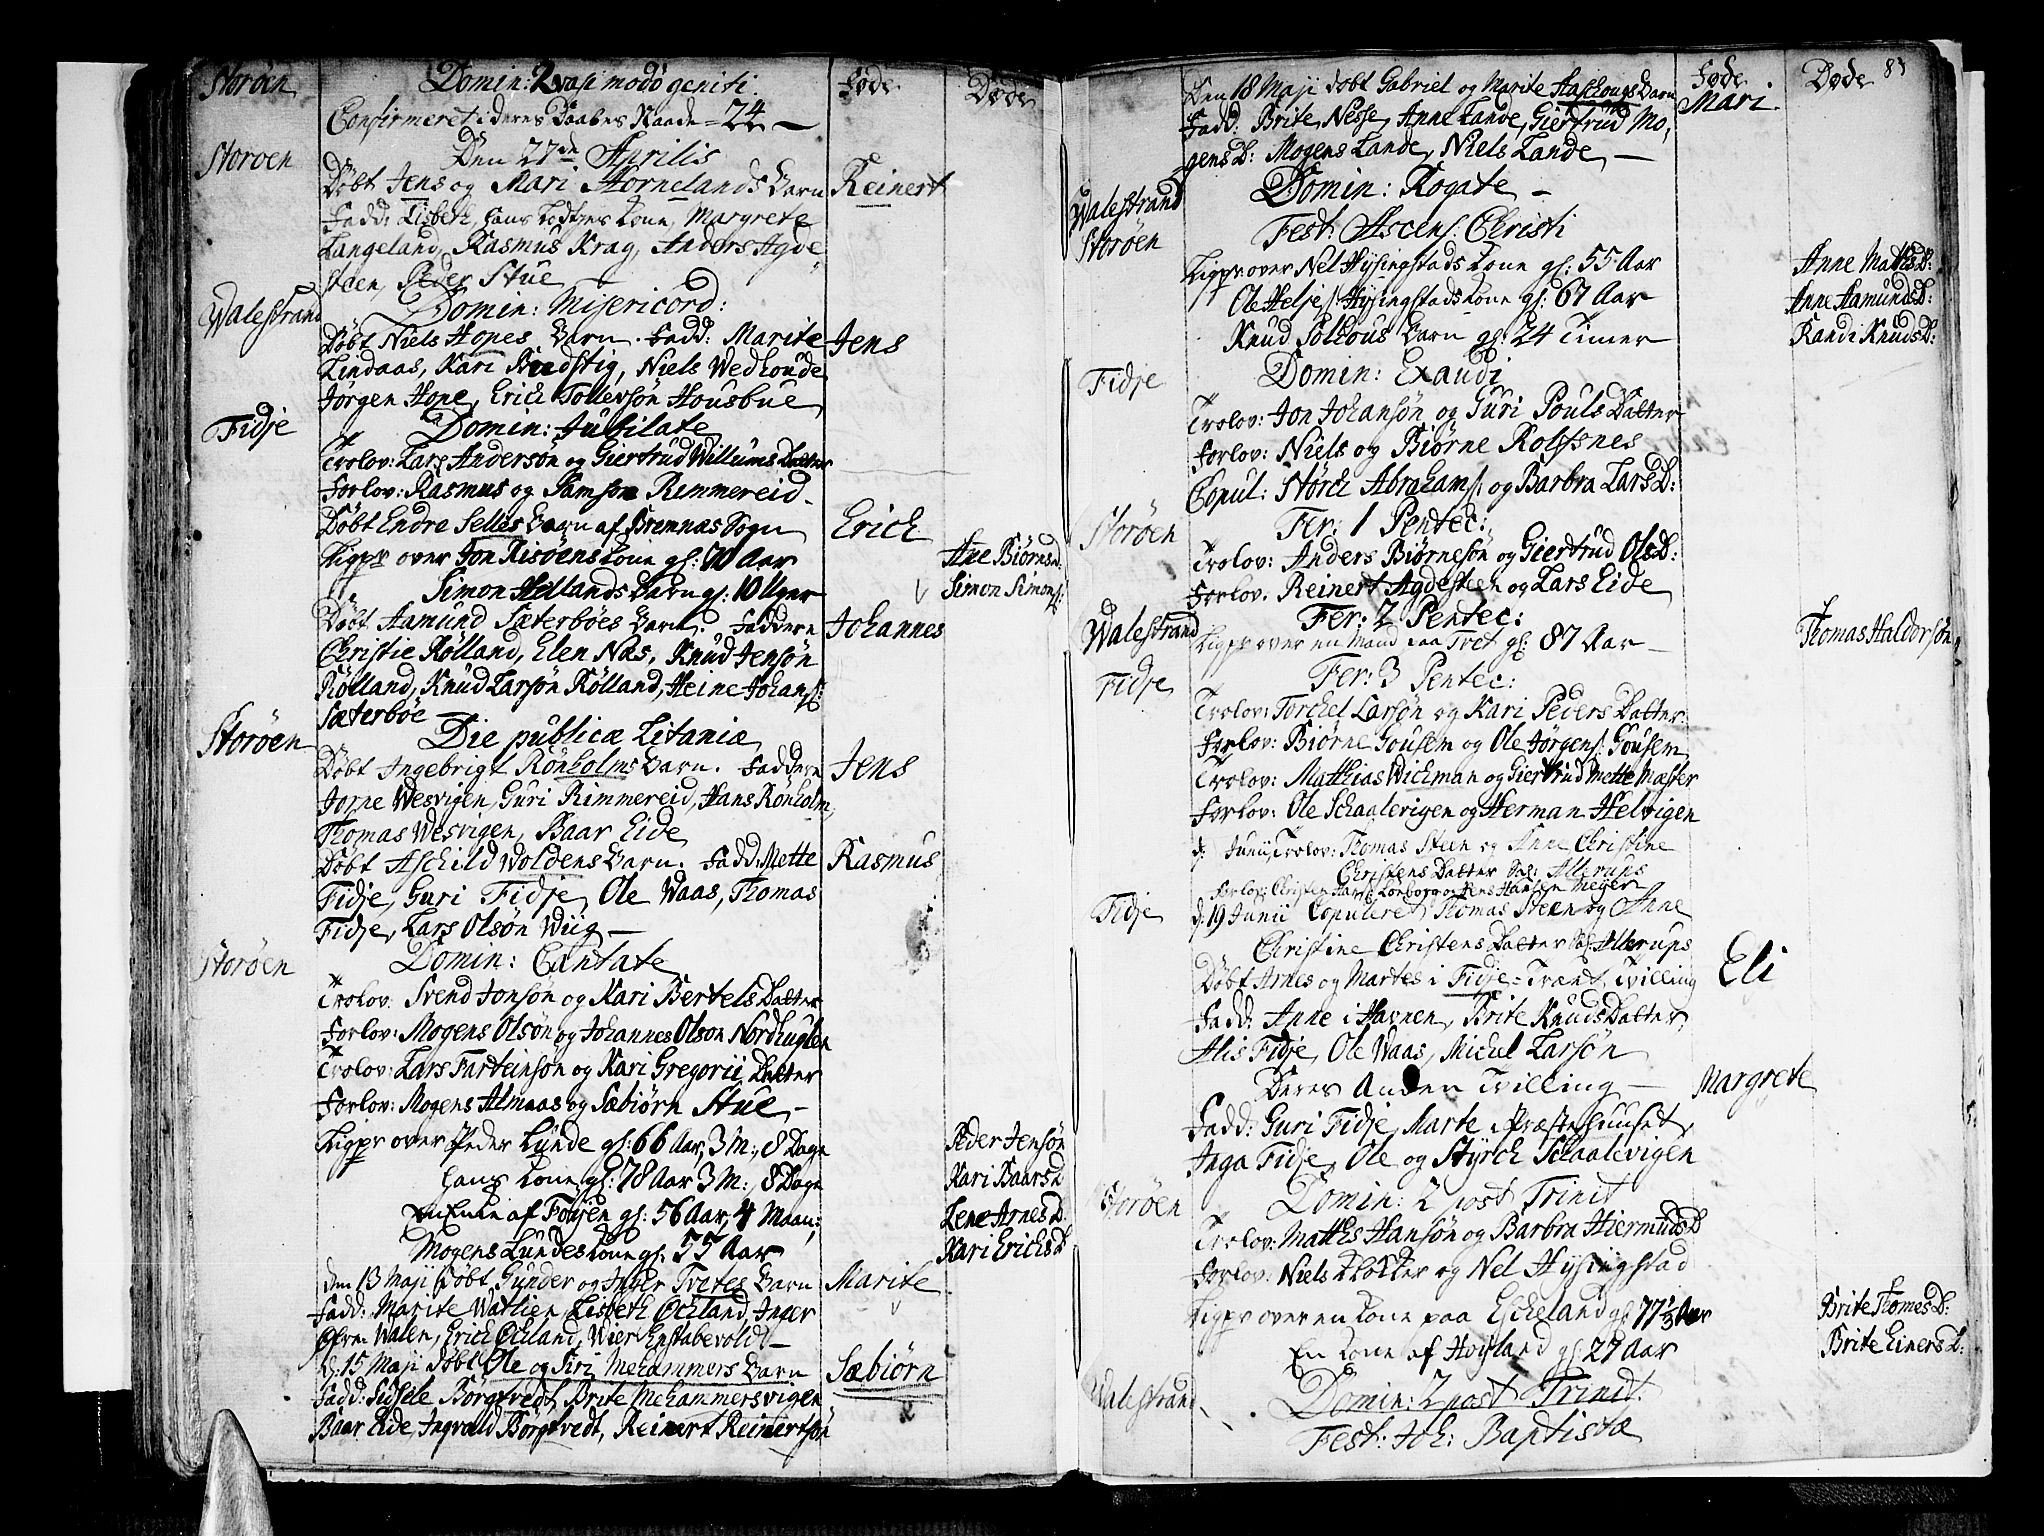 Storöen Domin: Qvasi modo geniti. Føde Døde
Confirmeret i deres Daabes Naade = 24 —
Storöen Den 27de Aprilis
Döbt Jens og Mari Hornelands Barn Reinert
Fadd: Lisbeth, hans Kone, Margrete
Langeland, Rasmus Krag, Anders Agde
steen, Peder Stue —
Walestrand Domin: Misericord:
Döbt Niels Hopes Barn. Fadd: Marite Jens
Lindaas, Kari Indstig, Niels Wedhoude
Jörgen Hope, Erich Tollevsön Housbue
Fidje Domin: Jubilate
Trolov: Lars Anderson og Giertrud Willums Datter
Forlov: Rasmus og Samson Rimmereid.
Döbt Endre Selles Barn af Bremnæs Sogn Erich
Ligpr over Jon Risöens Kone gl: 70 Aar Ane Biörnsd.
Simon Hellands Barn gl: 10 Uger Simon Simons:
Döbt Aamund Sæterböes Barn. Faddere Johannes
Christie Rölland, Elen Næs, Knud Jensön
Rölland, Knud Larsön Rölland, Heine Johans:
Sæterböe
Storöen Die publicæ Litaniæ
Döbt Ingebrigt Rönholms Barn. Faddere Jens
Jorne Wesvigen, Guri Rimmereid, Hans Rönholm,
Thomas Wesvigen, Baar Eide
Döbt Aschild Woldens Barn. Fadd: Mette Rasmus
Fidje, Guri Fidje, Ole Waas, Thomas
Fidje, Lars Olsön Wiig —
Storöen Domin: Cantate
Trolov: Svend Jonsön og Kari Bertels Datter
Forlov: Mogens Olsön og Johannes Olson Nordhuglen
Trolov: Lars Farteinsön og Kari Gregorii Datter
Forlov: Mogens Almaas og Sæbiörn Stue —
Ligpr over Peder Lunde gl: 66 Aar, 3 M:, 8 Dage Peder Jensön
hans Kone gl: 78 Aar 3 M:, 8 Dage Kari Baarsd
En Enke af Foyen gl: 56 Aar, 4 Maan: Lene Arnes D.
Mogens Lundes Kone gl: 55 Aar Kari Erichs D.
den 13 Maji Döbt Gunder og Inger Tretes Barn Marite
Fadd: Marite Watlien, Lisbeth Öckland, Inger
Walen, Erich Öckland, Wier Enstabevold —
d: 15 Maji Döbt Ole og Siri Mehammers Barn Sæbiörn
Fadd: Sidsele Börgtvedt, Brite Mehammersvigen
Baar Eide, Ingvald Börgtvedt, Reinert Reinertsön
Den 18 Maji Döbt Gabriel og Marite Barn Føde Døde
Fadd: Brite Nesse, Anne Lande, Giertrud Mo, Mari
gens D: Mogens Lande, Niels Lande, —
Walestrand Domin: Rogate —
Storöen Fest: Ascens: Christi
Ligpr over Nel Hysingstads Kone gl: 55 Aar Anne Mathis D:
Ole Heljes: Hysingstads Kone gl: 67 Aar Anne Aamunds D:
Knud Barn gl: 24 Timer Randi Knuds D:
Fidje Domin: Exaudi
Trolov: Jon Johansön og Guri Pouls Datter
Forlov: Niels og Biörne Rolfsnes
Copul: Störch Abrahams: og Barbra Lars D:
Storöen Fer: 1 Pentec:
Trolov: Anders Biörnesön og Giertrud Ols D:
Forlov. Reinert Agdesteen og Lars Eide
Walestrand Fer: 2 Pentec:
Ligpr over en Mand paa Tret gl: 87 Aar — Thomas Haldorsön
Fidje Fer: 3 Pentec:
Trolov: Torchel Larsön og Kari Peders Datter
Forlov: Biörne Gousem og Ole Jörgens: Gousem
Trolov: Matthias Wichman og Giertrud Mette Mæster
Forlov: Ole Schaalevigen og Herman Helvigen
d: Junii Trolov: Thomas Steen og Anne Christine
Christens Datter Sal: Allerups
Forlov: Christen Hans: Lönborg og Jens Hansen Meyer
Fidje d: 19 Junii Copuleret Thomas Steen og Anne
Christine Christens Datter Sal: Allerups
Döbt Arnes og Martes i Fidje = Træet, Tvilling Eli
Fadd: Anne i Havnen, Brite Knuds Datter,
Alis Fidje, Ole Waas, Michel Larsön
Deres Anden Tvilling — Margrete
Fadd: Guri Fidje, Marte i Præstehuuset,
Inga Fidje, Ole og Styrch Schaalevigen
Storöen Domin: 2 post Trinit
Trolov: Matthis Hansön og Barbra Hiermuds D
Forlov: Niels Klokker og Nel Hysingstad
Ligpr over en Kone paa Escheland gl: 77 1/3 Aar Brite Thomes D:
En Kone af Hoyland gl: 27 Aar Brite Einers D:
Walestrand Domin: 2 post Trinit.
Fest: Joh: Baptistæ